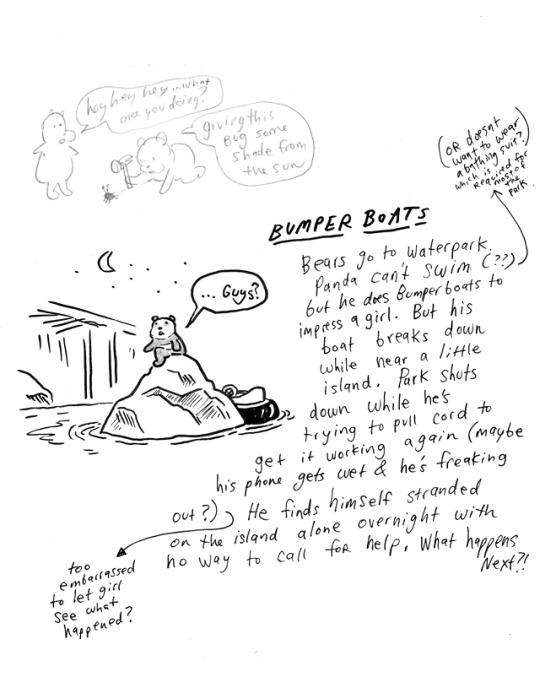 hey hey hey... what
are you doing?
giving this
Bug some
shade from
the sun
(OR doesn't
want to wear
a bathing suit?
which is
required for
most of
the
park.
BUMPER BOATS
Bears go to waterpark.
Panda can't swim (??)
but he does Bumperboats to
impress a girl. But his
boat breaks down
while near a little
island. Park shuts
down while he's
trying to pull cord to
get it working again (maybe
his phone gets wet & he's freaking
out?) He finds himself stranded
on the island alone overnight with
no way to call for help. What happens
Next?!
... Guys?
too
embarrassed
to let girl
see what
happened?